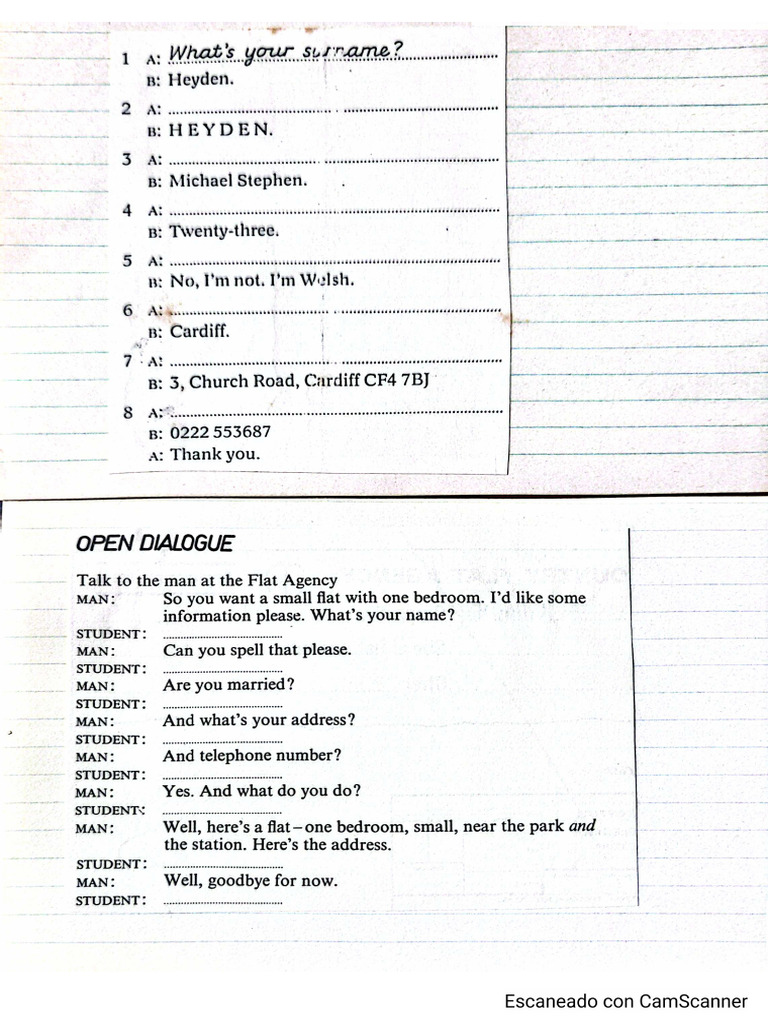 1 A: What's your surname?
B: Heyden.
2 A: ........................................
B: H E Y D E N.
3 A: ........................................
B: Michael Stephen.
4 A: ........................................
B: Twenty-three.
5 A: ........................................
B: No, I'm not. I'm Welsh.
6 A: ........................................
B: Cardiff.
7 A: ........................................
B: 3, Church Road, Cardiff CF4 7BJ
8 A: ........................................
B: 0222 553687
A: Thank you.
OPEN DIALOGUE
Talk to the man at the Flat Agency
MAN: So you want a small flat with one bedroom. I'd like some
information please. What's your name?
STUDENT: ..............................
MAN: Can you spell that please.
STUDENT: ..............................
MAN: Are you married?
STUDENT: ..............................
MAN: And what's your address?
STUDENT: ..............................
MAN: And telephone number?
STUDENT: ..............................
MAN: Yes. And what do you do?
STUDENT: ..............................
MAN: Well, here's a flat – one bedroom, small, near the park and
the station. Here's the address.
STUDENT: ..............................
MAN: Well, goodbye for now.
STUDENT: ..............................
Escaneado con CamScanner